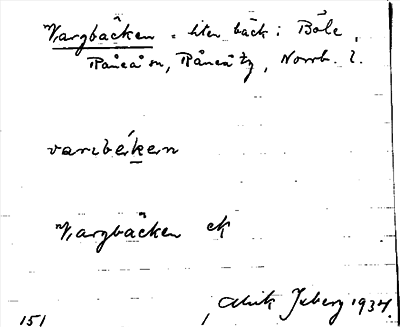 Vargbäcken = liten bäck i Böle,
Råneå sn, Råneå tg, Norrb. l.
varzbékern
Vargbäcken ek
Alrik Isberg 1934.
151